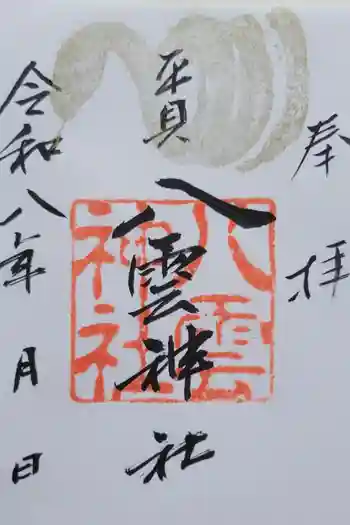 奉拝
貭
八雲神社
八雲神社
令和八年 月 日